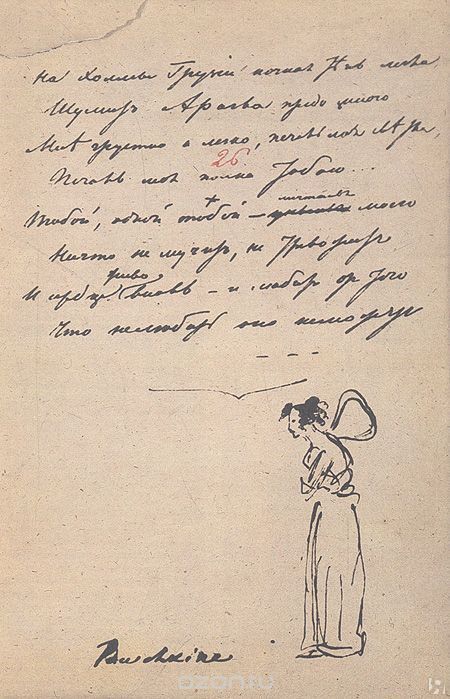 На холмы Грузии ночная тень легла
Шумит Арагва предо мною
Мне грустно и легко, печаль моя светла,
26
Печаль моя полна Тобою...
Тобой, одной тобой – моего
Ничто не мучит, не тревожит
И сердце вновь – и любит от того
Что не любить оно не может
Puchkine